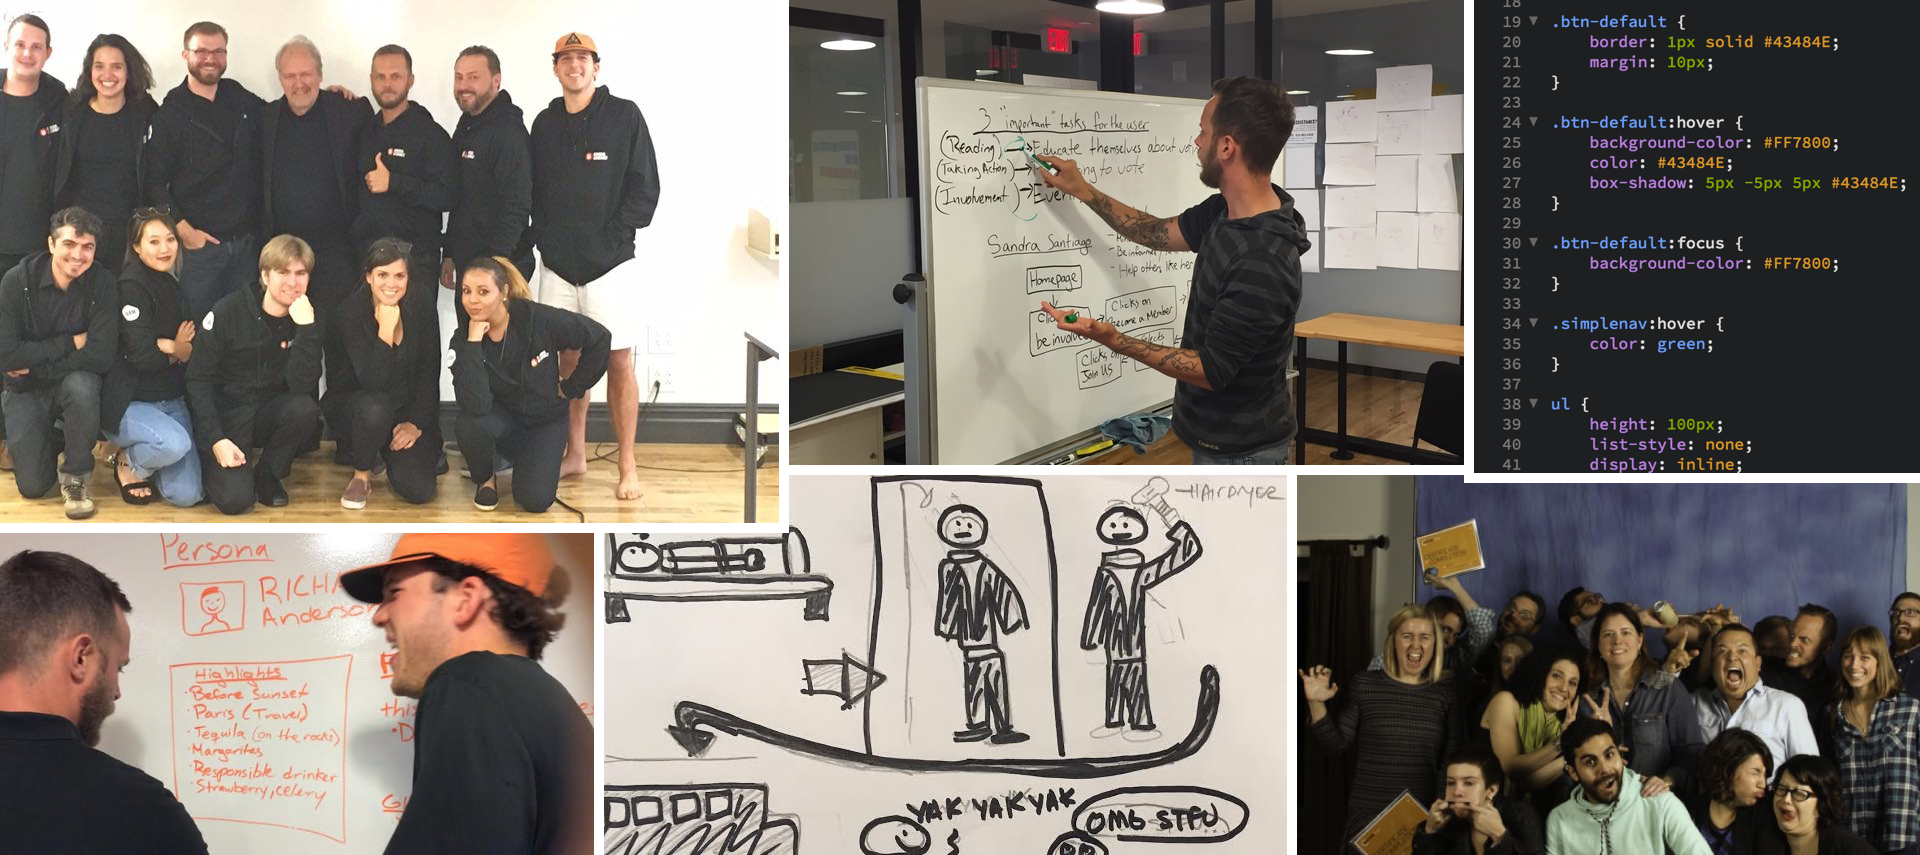 3 "important" tasks for the user
(Reading) → Educate themselves about
(Taking Action) → to vote
(Involvement) →
Sandra Santiago
- Help others like her
Homepage
be involved
Clicks on
become a Member
Clicks on
Join US
18
19 .btn-default {
20 border: 1px solid #43484E;
21 margin: 10px;
22 }
23
24 .btn-default:hover {
25 background-color: #FF7800;
26 color: #43484E;
27 box-shadow: 5px -5px 5px #43484E;
28 }
29
30 .btn-default:focus {
31 background-color: #FF7800;
32 }
33
34 .simplenav:hover {
35 color: green;
36 }
37
38 ul {
39 height: 100px;
40 list-style: none;
41 display: inline;
Persona
RICHA
Anderson
Highlights
· Before Sunset
· Paris (Travel)
· Tequila (on the rocks)
· Margaritas
· Responsible drinker
· Strawberry, celery
this
HAIRDRYER
YAK YAK YAK
OMG STFU
CERTIFICATE
COMPLETION